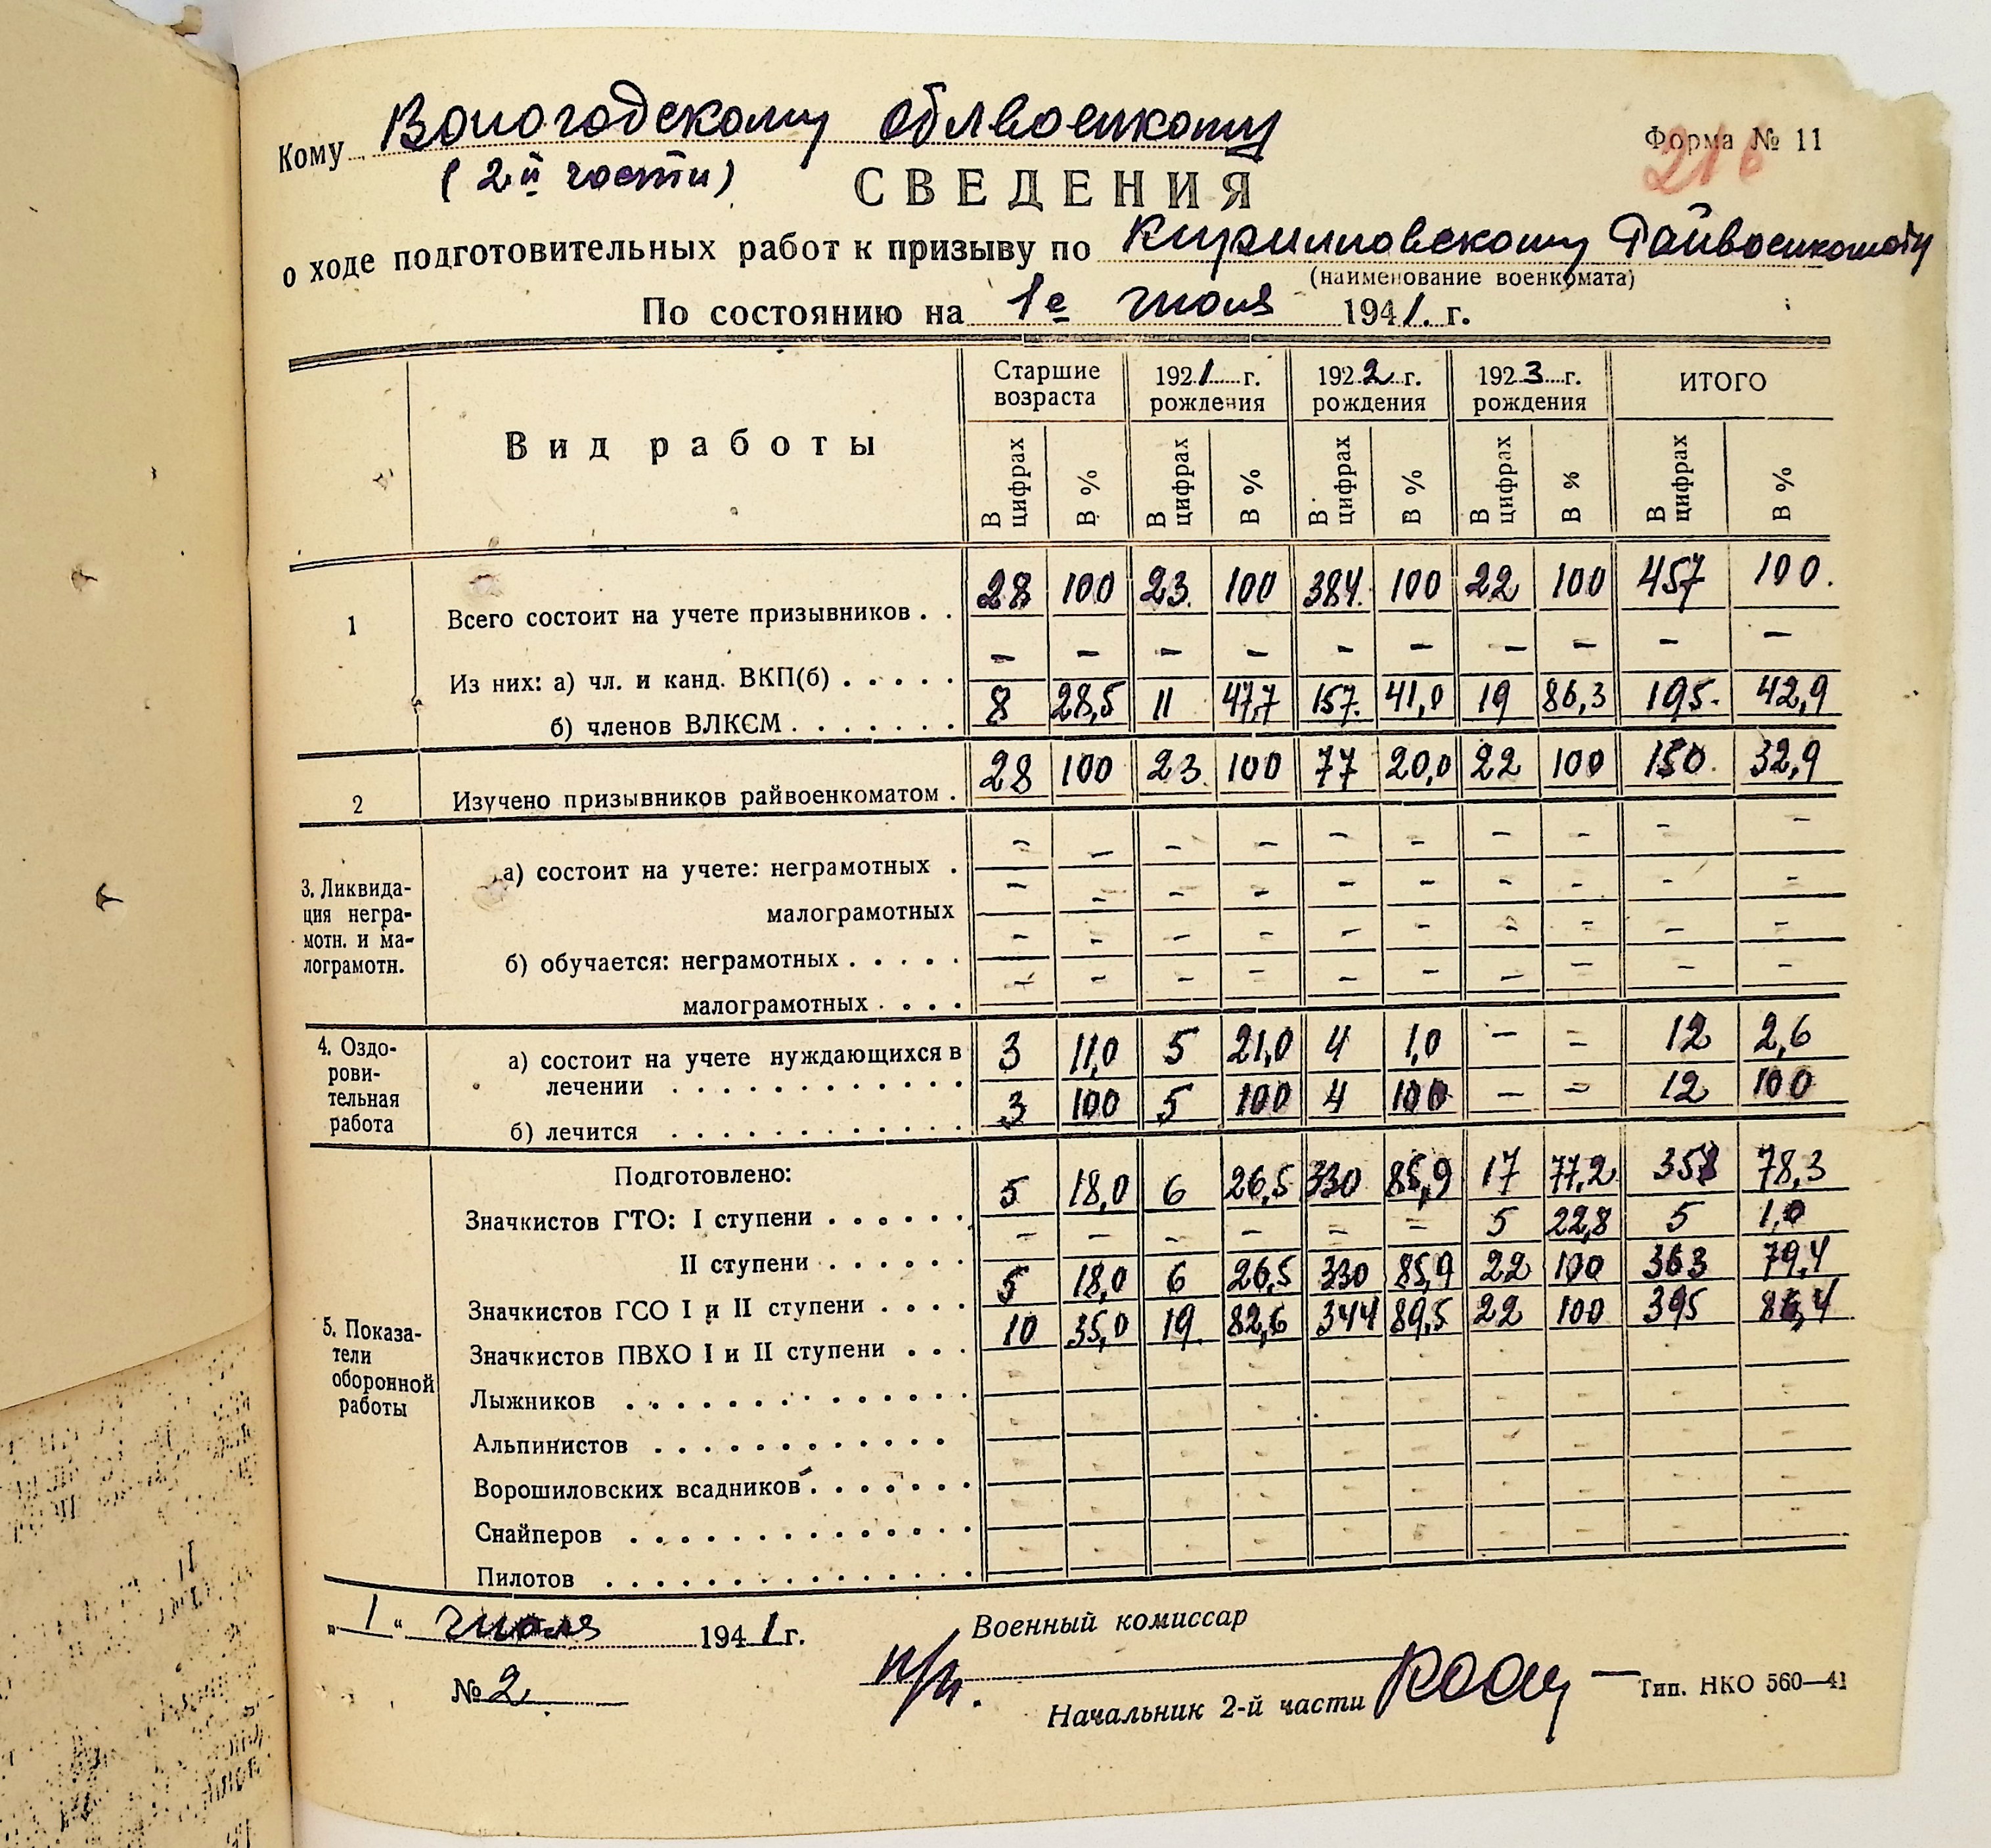 Форма № 11
216
Кому Вологодскому облвоенкому
(2й части)
СВЕДЕНИЯ
о ходе подготовительных работ к призыву по Кирилловскому Райвоенкомату
(наименование военкомата)
По состоянию на 1е июля 1941. г.
Вид работы Старшие возраста 1921 г. рождения 1922 г. рождения 1923 г. рождения ИТОГО
В цифрах В % В цифрах В % В цифрах В % В цифрах В % В цифрах В %
1 Всего состоит на учете призывников . . 28 100 23. 100 384. 100 22 100 457 100.
Из них: а) чл. и канд. ВКП(б) . . . . . – – – – – – – – – –
б) членов ВЛКСМ . . . . . . . 8 28,5 11 47,7 157. 41,0 19 86,3 195. 42,9
2 Изучено призывников райвоенкоматом . 28 100 23. 100 77 20,0 22 100 150. 32,9
3. Ликвида-
ция негра-
мотн. и ма-
лограмотн.
а) состоит на учете: неграмотных . – – – – – – – – – –
малограмотных – – – – – – – – – –
б) обучается: неграмотных . . . . . – – – – – – – – – –
малограмотных . . . . – – – – – – – – – –
4. Оздо-
рови-
тельная
работа
а) состоит на учете нуждающихся в
лечении . . . . . . . . . . . . 3 11,0 5 21,0 4 1,0 – = 12 2,6
б) лечится . . . . . . . . . . . . 3 100 5 100 4 100 – = 12 100
5. Показа-
тели
оборонной
работы
Подготовлено:
Значкистов ГТО: I ступени . . . . . . 5 18,0 6 26,5 330 85,9 17 77,2 358 78,3
II ступени . . . . . . – – – – = = 5 22,8 5 1,0
Значкистов ГСО I и II ступени . . . . 5 18,0 6 26,5 330 85,9 22 100 363 79,4
Значкистов ПВХО I и II ступени . . . 10 35,0 19. 82,6 344 89,5 22 100 395 86,4
Лыжников . . . . . . . . . . . . . . – – – – – – – – – –
Альпинистов . . . . . . . . . . . . – – – – – – – – – –
Ворошиловских всадников . . . . . . . – – – – – – – – – –
Снайперов . . . . . . . . . . . . . . – – – – – – – – – –
Пилотов . . . . . . . . . . . . . . . – – – – – – – – – –
„ 1 “ июля 1941 г.
№ 2
Военный комиссар
п/п.
Начальник 2-й части
Тип. НКО 560—41